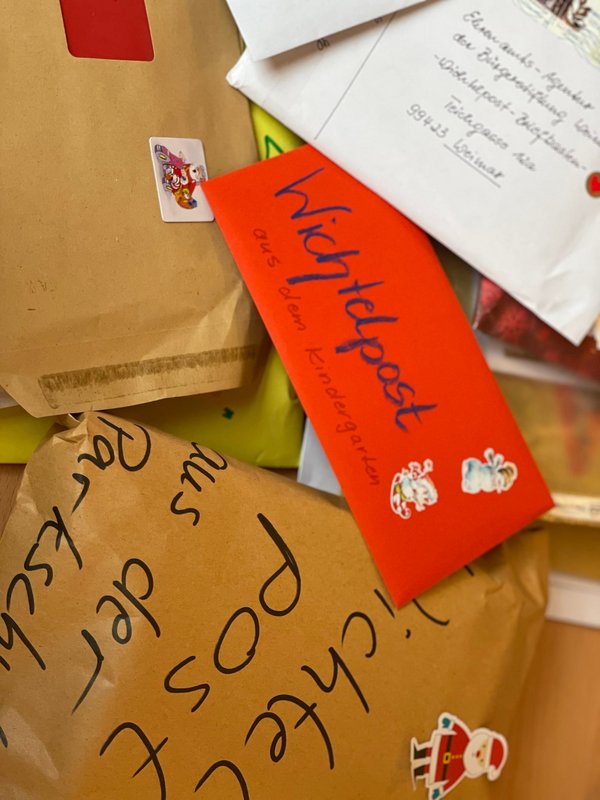 Ehrenamts-Agentur
der Bürgerstiftung Weimar
-Wichtelpost-Briefkasten-
Teichgasse 12a
99423 Weimar
Wichtelpost
aus dem Kindergarten
Wichtel
POST
aus der
Parkschu